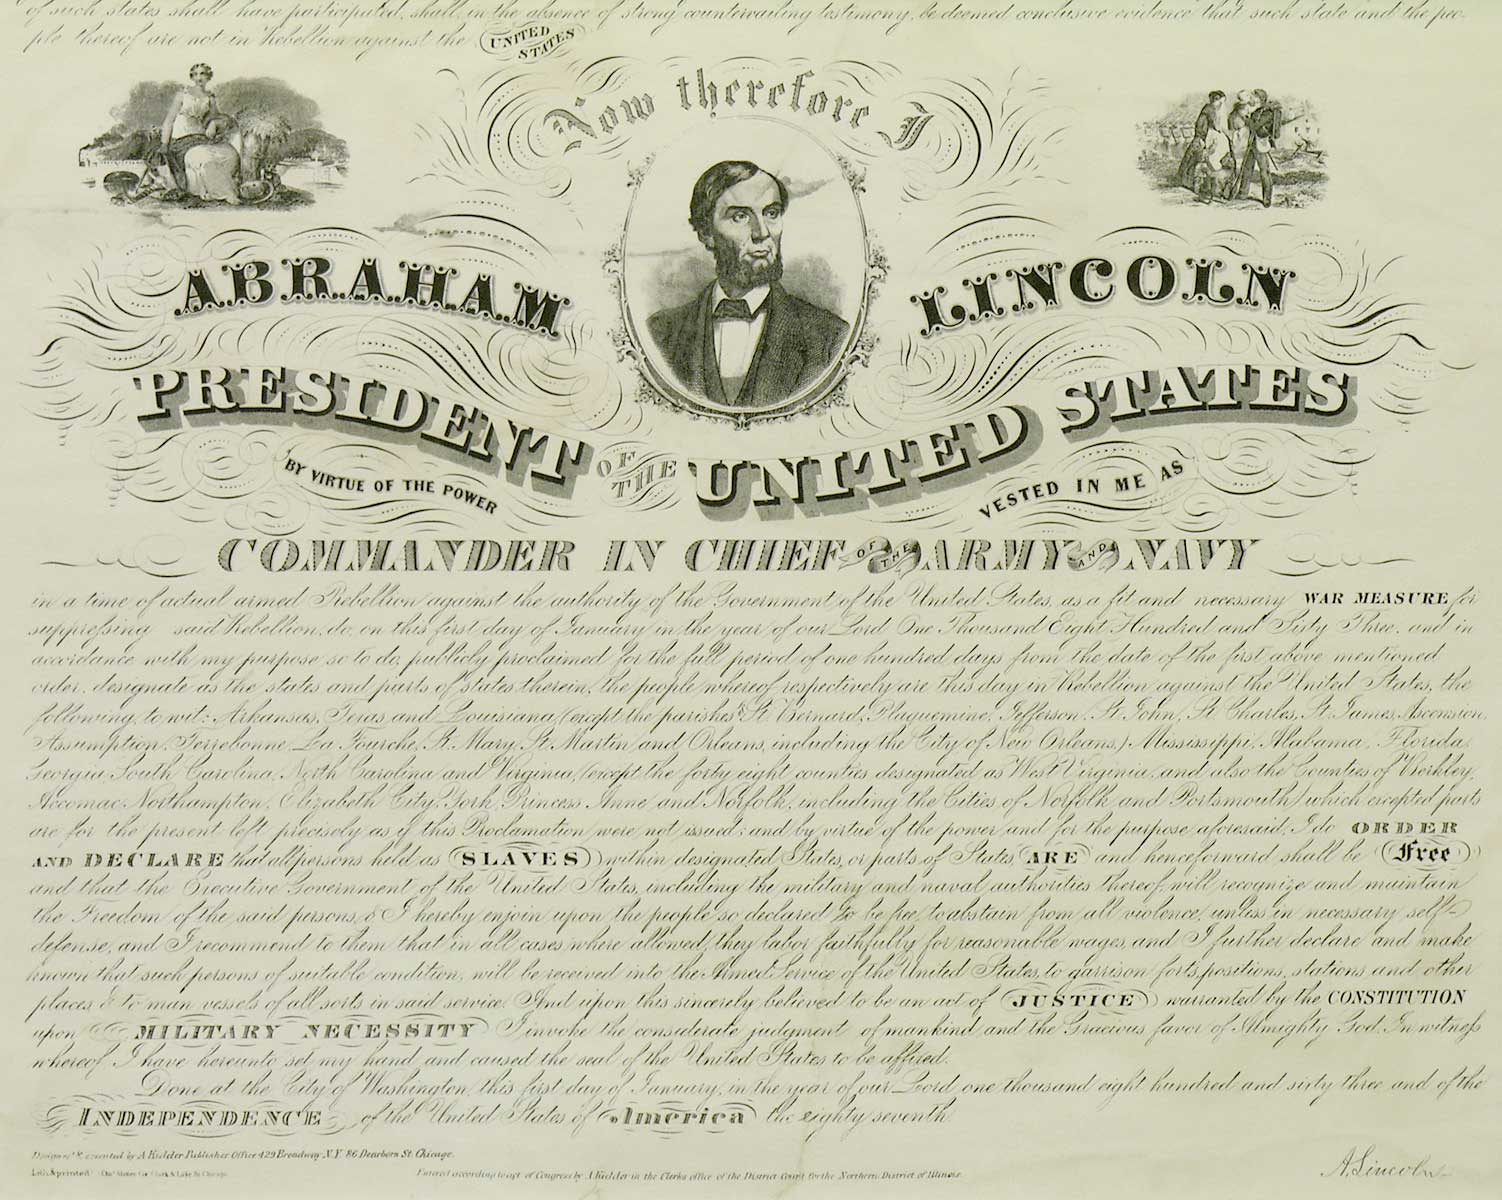 of such states shall have participated, shall, in the absence of strong countervailing testimony, be deemed conclusive evidence that such state and the peo-
ple thereof are not in Rebellion against the UNITED STATES
Now therefore I
ABRAHAM LINCOLN
PRESIDENT OF THE UNITED STATES
BY VIRTUE OF THE POWER VESTED IN ME AS
COMMANDER IN CHIEF OF THE ARMY AND NAVY
in a time of actual armed Rebellion against the authority of the Government of the United States, as a fit and necessary WAR MEASURE for
suppressing said Rebellion, do, on this first day of January in the year of our Lord One Thousand Eight Hundred and Sixty Three, and in
accordance with my purpose so to do, publicly proclaimed for the full period of one hundred days from the date of the first above mentioned
order, designate as the states and parts of states therein, the people whereof respectively are this day in Rebellion against the United States, the
following, to wit: Arkansas, Texas, and Louisiana, (except the parishes St. Bernard, Plaquemine, Jefferson, St. John, St. Charles, St. James, Ascension,
Assumption, Terrebonne, La Fourche, St. Mary, St. Martin and Orleans, including the City of New Orleans,) Mississippi, Alabama, Florida,
Georgia, South Carolina, North Carolina and Virginia, (except the forty eight counties designated as West Virginia, and also the Counties of Berkley,
Accomac, Northampton, Elizabeth City, York, Princess Anne and Norfolk, including the Cities of Norfolk and Portsmouth) which excepted parts
are for the present left precisely as if this Proclamation were not issued; and by virtue of the power and for the purpose aforesaid, I do ORDER
AND DECLARE that all persons held as SLAVES within designated States, or parts of States ARE and henceforward shall be Free
and that the Executive Government of the United States, including the military and naval authorities thereof, will recognize and maintain
the Freedom of the said persons, & I hereby enjoin upon the people so declared to be free, to abstain from all violence, unless in necessary self-
defense, and I recommend to them that in all cases, where allowed, they labor faithfully for reasonable wages, and I further declare and make
known that such persons of suitable condition, will be received into the Armed Service of the United States, to garrison forts, positions, stations and other
places, & to man vessels of all sorts in said service. And upon this sincerely believed to be an act of JUSTICE warranted by the CONSTITUTION
upon MILITARY NECESSITY I invoke the considerate judgment of mankind and the Gracious favor of Almighty God. In witness
whereof I have hereunto set my hand and caused the seal of the United States to be affixed.
Done at the City of Washington, this first day of January, in the year of our Lord one thousand eight hundred and sixty three and of the
INDEPENDENCE of the United States of America the eighty seventh.
Designed & executed by A Kidder Publisher Office 429 Broadway N.Y. 86 Dearborn St. Chicago.
Lith & printed Clark & Lake St Chicago
Entered according to act of Congress by A Kidder in the Clerks office of the District Court for the Northern District of Illinois.
A. Lincoln